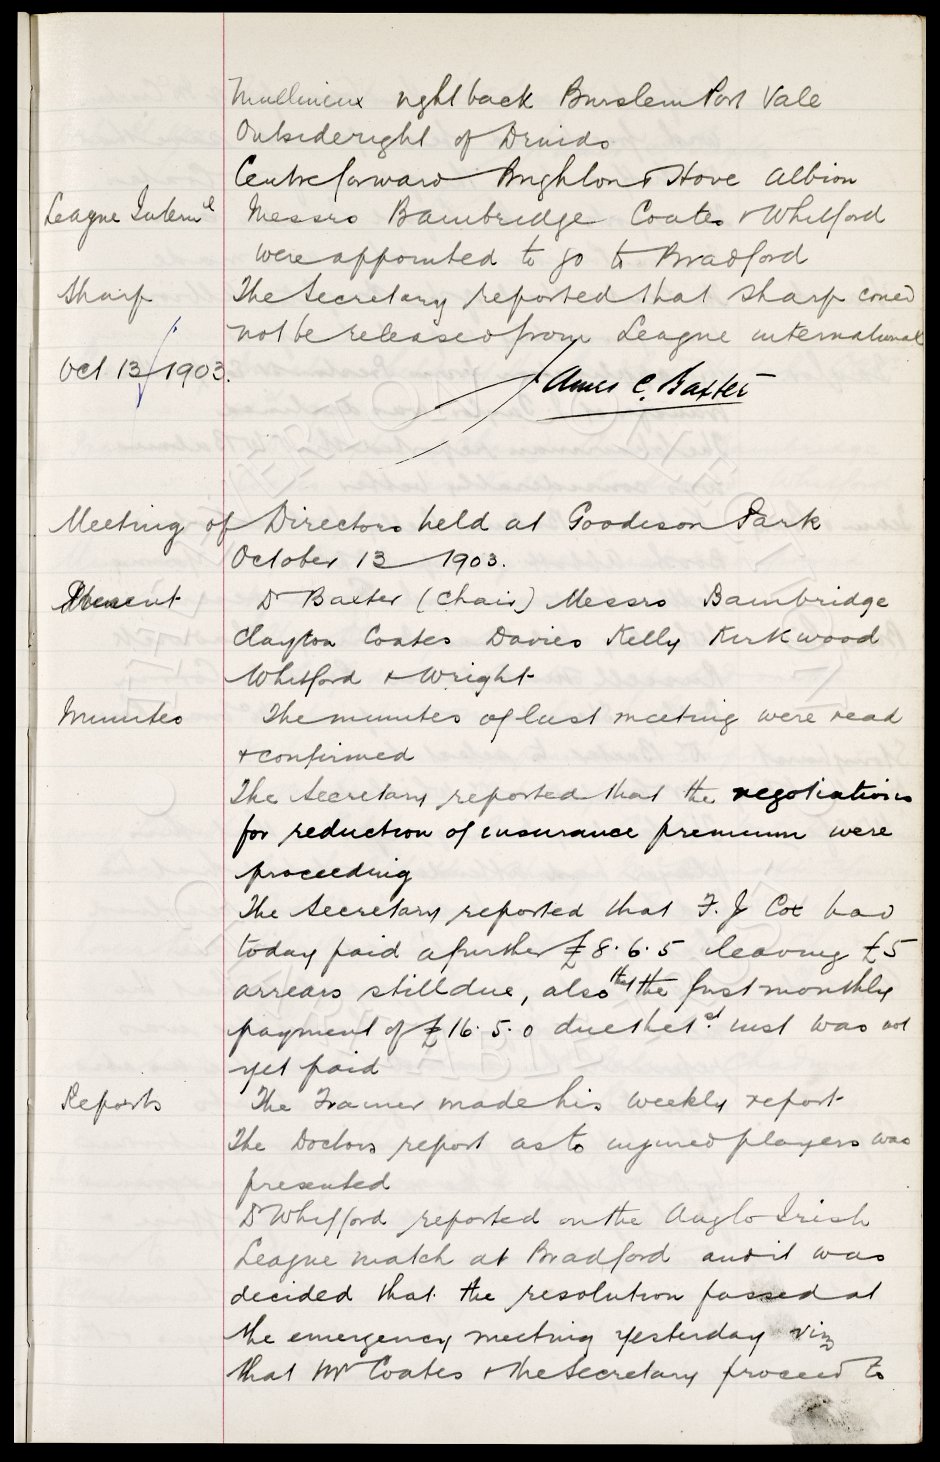 Mullineux right back Burslem Port Vale
Outside right of Druids
Centre forward Brighton & Hove Albion
League Intern'l Messrs Bainbridge Coates & Whitford
were appointed to go to Bradford
Sharp The Secretary reported that Sharp could
not be released from League international
Oct 13/1903. James C. Baxter
Meeting of Directors held at Goodison Park
October 13 1903.
Present Dr Baxter (Chair) Messrs Bainbridge
Clayton Coates Davies Kelly Kirkwood
Whitford & Wright
Minutes The minutes of last meeting were read
& confirmed
The Secretary reported that the negotiations
for reduction of insurance premium were
proceeding
The Secretary reported that F. J Cox had
today paid a further £8.6.5 leaving £5
arrears still due, also that the first monthly
payment of £16.5.0 due the 1st inst was not
yet paid
Reports The Trainer made his weekly report
The Doctors report as to injured players was
presented
Dr Whitford reported on the Anglo Irish
League match at Bradford and it was
decided that the resolution passed at
the emergency meeting yesterday viz
that Mr Coates & the Secretary proceed to